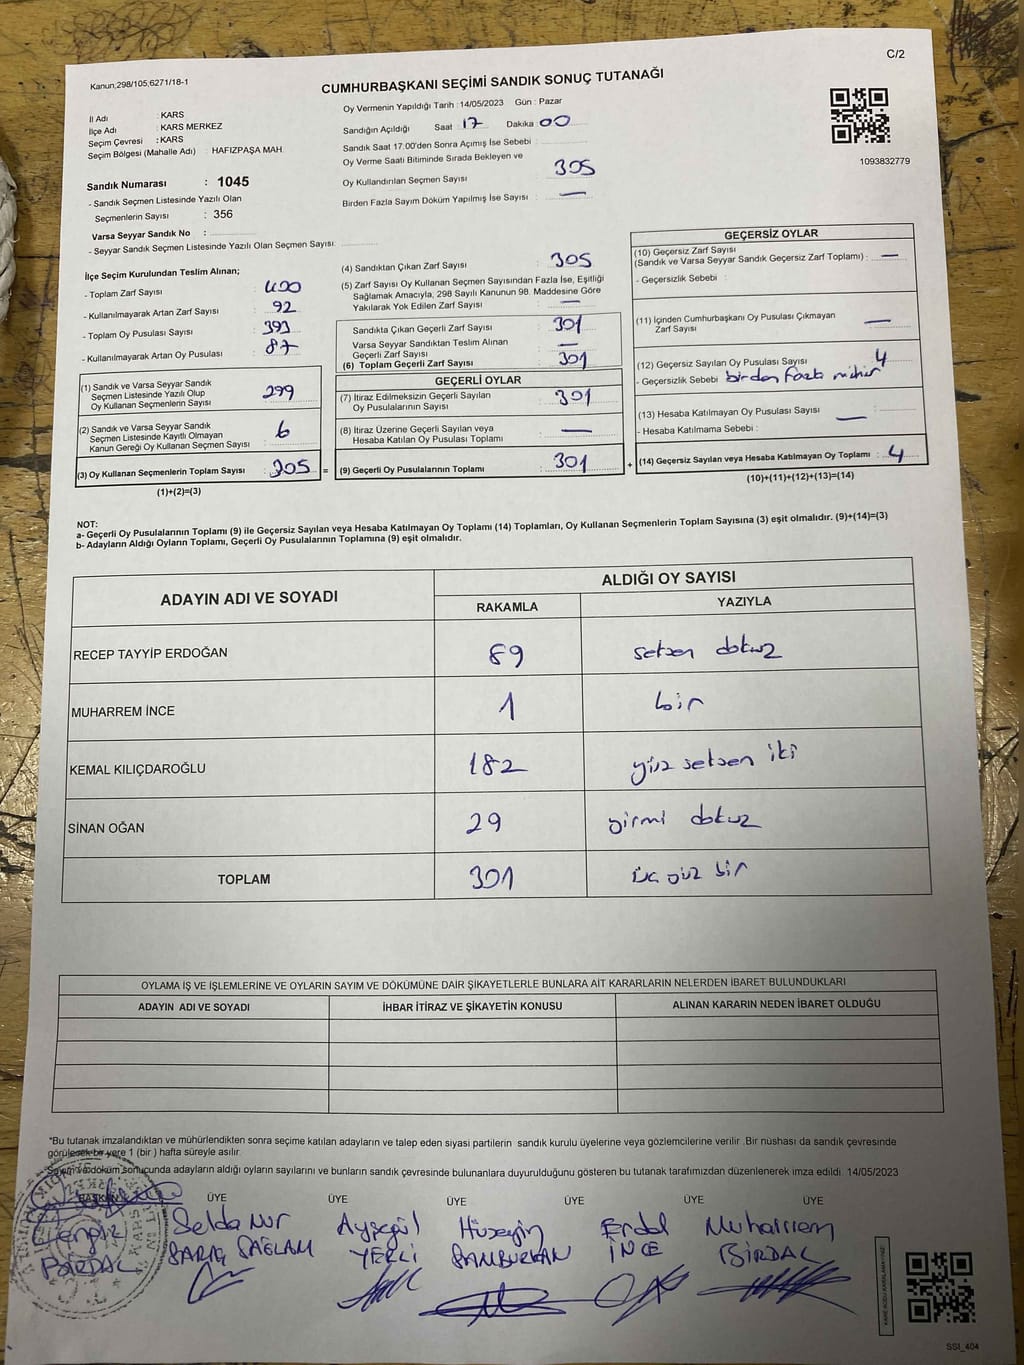 C/2
Kanun,298/105,6271/18-1
CUMHURBAŞKANI SEÇİMİ SANDIK SONUÇ TUTANAĞI
İl Adı : KARS
İlçe Adı : KARS MERKEZ
Seçim Çevresi : KARS
Seçim Bölgesi (Mahalle Adı) : HAFIZPAŞA MAH.
Sandık Numarası : 1045
- Sandık Seçmen Listesinde Yazılı Olan
Seçmenlerin Sayısı : 356
Varsa Seyyar Sandık No :
- Seyyar Sandık Seçmen Listesinde Yazılı Olan Seçmen Sayısı:
Oy Vermenin Yapıldığı Tarih : 14/05/2023 Gün : Pazar
Sandığın Açıldığı Saat : 17 Dakika : 00
Sandık Saat 17:00'den Sonra Açımış İse Sebebi :
Oy Verme Saati Bitiminde Sırada Bekleyen ve
Oy Kullandırılan Seçmen Sayısı : 305
Birden Fazla Sayım Döküm Yapılmış İse Sayısı : —
1093832779
İlçe Seçim Kurulundan Teslim Alınan;
- Toplam Zarf Sayısı : 400
- Kullanılmayarak Artan Zarf Sayısı : 92
- Toplam Oy Pusulası Sayısı : 393
- Kullanılmayarak Artan Oy Pusulası : 87
(1) Sandık ve Varsa Seyyar Sandık
Seçmen Listesinde Yazılı Olup
Oy Kullanan Seçmenlerin Sayısı : 299
(2) Sandık ve Varsa Seyyar Sandık
Seçmen Listesinde Kayıtlı Olmayan
Kanun Gereği Oy Kullanan Seçmen Sayısı : 6
(3) Oy Kullanan Seçmenlerin Toplam Sayısı : 305 =
(1)+(2)=(3)
(4) Sandıktan Çıkan Zarf Sayısı : 305
(5) Zarf Sayısı Oy Kullanan Seçmen Sayısından Fazla İse, Eşitliği
Sağlamak Amacıyla, 298 Sayılı Kanunun 98. Maddesine Göre
Yakılarak Yok Edilen Zarf Sayısı : —
Sandıkta Çıkan Geçerli Zarf Sayısı : 301
Varsa Seyyar Sandıktan Teslim Alınan
Geçerli Zarf Sayısı : —
(6) Toplam Geçerli Zarf Sayısı : 301
GEÇERLİ OYLAR
(7) İtiraz Edilmeksizin Geçerli Sayılan
Oy Pusulalarının Sayısı : 301
(8) İtiraz Üzerine Geçerli Sayılan veya
Hesaba Katılan Oy Pusulası Toplamı : —
(9) Geçerli Oy Pusulalarının Toplamı : 301 +
GEÇERSİZ OYLAR
(10) Geçersiz Zarf Sayısı
(Sandık ve Varsa Seyyar Sandık Geçersiz Zarf Toplamı) : —
- Geçersizlik Sebebi :
(11) İçinden Cumhurbaşkanı Oy Pusulası Çıkmayan
Zarf Sayısı : —
(12) Geçersiz Sayılan Oy Pusulası Sayısı : 4
- Geçersizlik Sebebi : birden fazla mühür
(13) Hesaba Katılmayan Oy Pusulası Sayısı : —
- Hesaba Katılmama Sebebi :
(14) Geçersiz Sayılan veya Hesaba Katılmayan Oy Toplamı : 4
(10)+(11)+(12)+(13)=(14)
NOT:
a- Geçerli Oy Pusulalarının Toplamı (9) ile Geçersiz Sayılan veya Hesaba Katılmayan Oy Toplamı (14) Toplamları, Oy Kullanan Seçmenlerin Toplam Sayısına (3) eşit olmalıdır. (9)+(14)=(3)
b- Adayların Aldığı Oyların Toplamı, Geçerli Oy Pusulalarının Toplamına (9) eşit olmalıdır.
ADAYIN ADI VE SOYADI
ALDIĞI OY SAYISI
RAKAMLA YAZIYLA
RECEP TAYYİP ERDOĞAN 89 seksen dokuz
MUHARREM İNCE 1 bir
KEMAL KILIÇDAROĞLU 182 yüz seksen iki
SİNAN OĞAN 29 yirmi dokuz
TOPLAM 301 üç yüz bir
OYLAMA İŞ VE İŞLEMLERİNE VE OYLARIN SAYIM VE DÖKÜMÜNE DAİR ŞİKAYETLERLE BUNLARA AİT KARARLARIN NELERDEN İBARET BULUNDUKLARI
ADAYIN ADI VE SOYADI İHBAR İTİRAZ VE ŞİKAYETİN KONUSU ALINAN KARARIN NEDEN İBARET OLDUĞU
*Bu tutanak imzalandıktan ve mühürlendikten sonra seçime katılan adayların ve talep eden siyasi partilerin sandık kurulu üyelerine veya gözlemcilerine verilir .Bir nüshası da sandık çevresinde
görülecek bir yere 1 (bir ) hafta süreyle asılır.
Sayım ve döküm sonucunda adayların aldığı oyların sayılarını ve bunların sandık çevresinde bulunanlara duyurulduğunu gösteren bu tutanak tarafımızdan düzenlenerek imza edildi. 14/05/2023
BAŞKAN ÜYE ÜYE ÜYE ÜYE ÜYE ÜYE
Cengiz Selda Nur Ayşegül Hüseyin Erdal Muharrem
BİRDAL SARAÇ SAĞLAM YERLİ SAMBURKAN İNCE BİRDAL
SSI_404